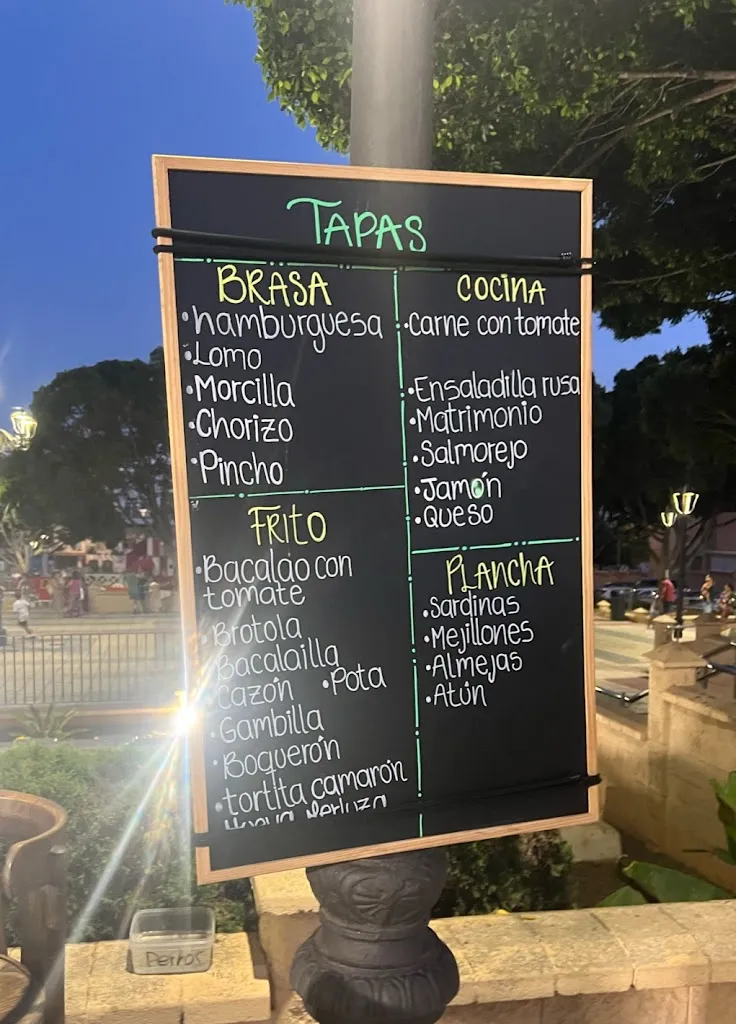 TAPAS
BRASA
•hamburguesa
•Lomo
•Morcilla
•Chorizo
•Pincho
FRITO
•Bacalao con
tomate
•Brotola
•Bacalailla
•Cazón •Pota
•Gambilla
•Boquerón
•tortita camarón
Hueva Merluza
COCINA
•Carne con tomate
•Ensaladilla rusa
•Matrimonio
•Salmorejo
•Jamón
•Queso
PLANCHA
•Sardinas
•Mejillones
•Almejas
•Atún
Perros